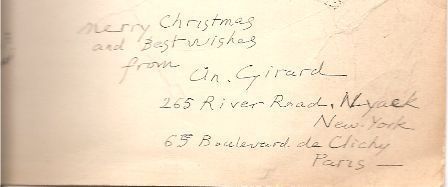 Merry Christmas
and Best Wishes
from
An. Girard
265 River Road, Nyack
New-York
65 Boulevard de Clichy
Paris —